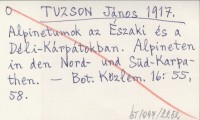 O TUZSON János 1917.
Alpinetumok az Északi és a
Déli-Kárpátokban. Alpineten
in den Nord- und Süd-Karpa-
then. — Bot. Közlem. 16: 55,
58.